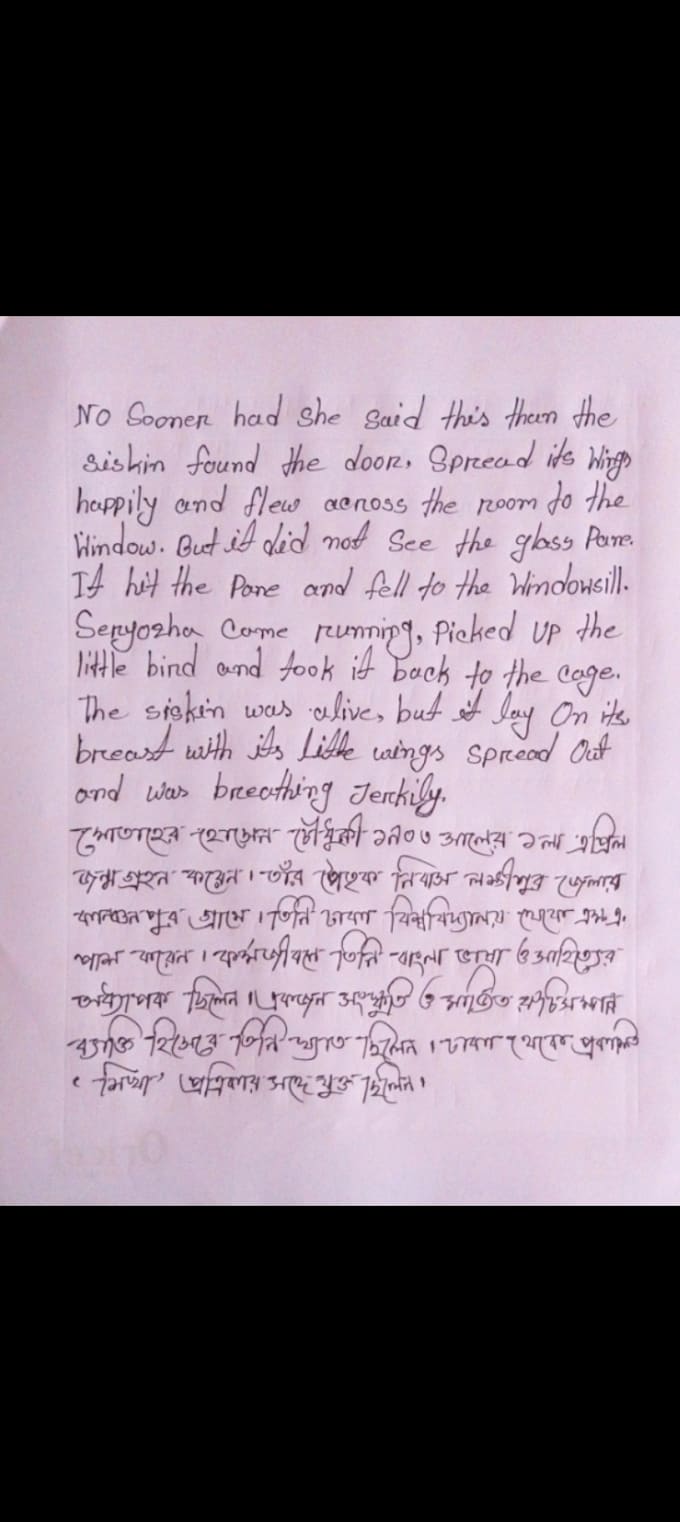 No Sooner had She Said this than the
siskin found the door, Spread its Wings
happily and flew across the room to the
Window. But it did not See the glass Pane.
It hit the Pane and fell to the Windowsill.
Seryozha Came running, Picked UP the
little bird and took it back to the cage.
The siskin was alive, but it lay On its
breast with its little wings spread Out
and was breathing Jerkily.
মোতাহের হোসেন চৌধুরী ১৯০৩ সালের ১লা এপ্রিল
জন্মগ্রহন করেন। তাঁর পৈতৃক নিবাস লক্ষীপুর জেলার
কাঞ্চনপুর গ্রামে। তিনি ঢাকা বিশ্ববিদ্যালয় থেকে এম.এ.
পাস করেন। কর্মজীবনে তিনি বাংলা ভাষা ও সাহিত্যের
অধ্যাপক ছিলেন। একজন সংস্কৃতি ও মার্জিত রুচিসম্পন্ন
ব্যাক্তি হিসেবে তিনি খ্যাত ছিলেন। ঢাকা থেকে প্রকাশিত
‘শিখা’ প্রত্রিকার সঙ্গে যুক্ত ছিলেন।